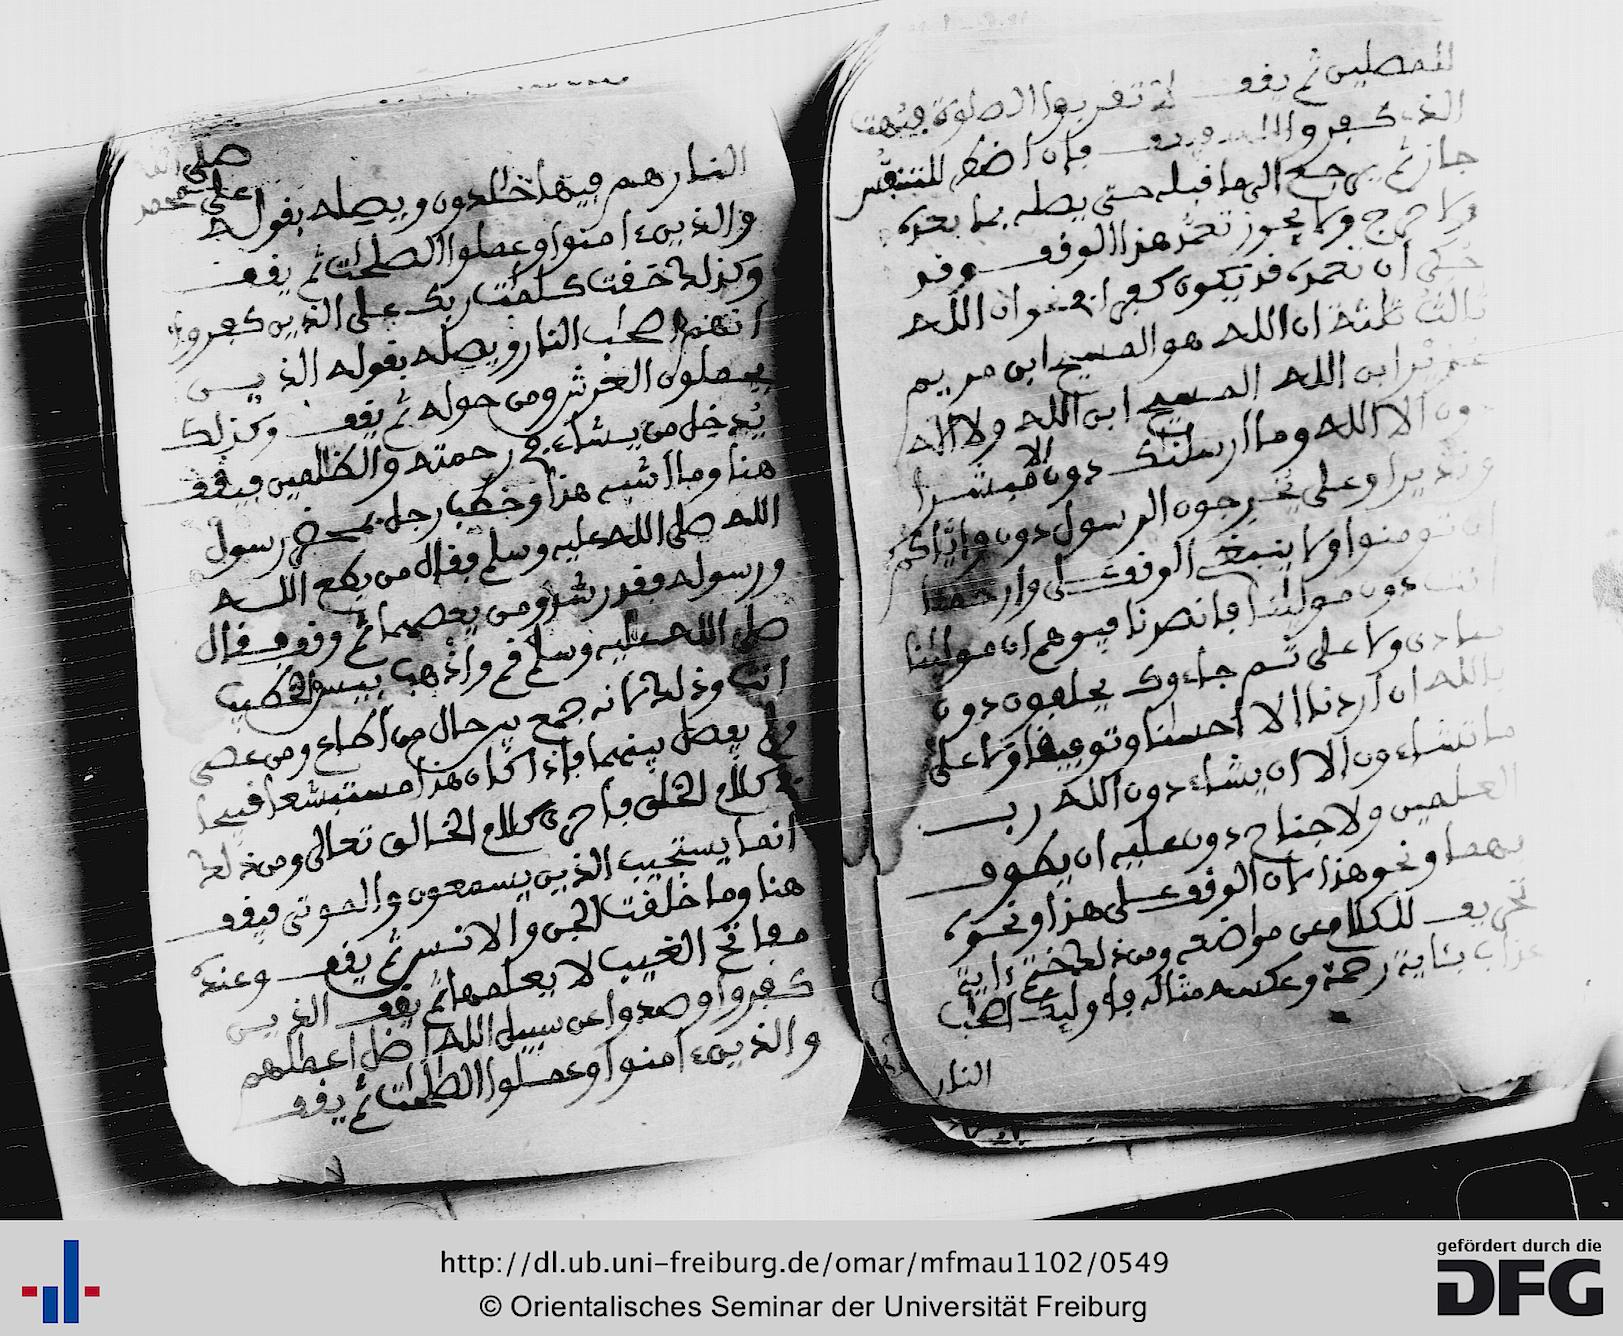 للمصلين ثم يقف لا تقربوا الصلوة فبهت
الذى كفر والله ويقف فإن اضطر للتنفس
جاز ثم يرجع الى ما قبله حتى يصله بما بعده
ولا حرج ولا يجوز تعمد هذا الوقف وقد
حكى أن تعمده قد يكون كفرا نحو ان الله
ثالث ثلثة ان الله هو المسيح ابن مريم
عزير ابن الله المسيح ابن الله ولا اله
دون الا الله وما ارسلنك دون الا مبشرا
ونذيرا وعلى يخرجون الرسول دون وإياكم
ان تومنوا ولا ينبغى الوقف على وارحمنا
انت دون مولينا فانصرنا
ولا على ثم جاءوك يحلفون دون
بالله ان اردنا الا احسنا وتوفيقا ولا على
ما تشاءون الا ان يشاء دون الله رب
العلمين ولا جناح دون عليه ان يطوف
بهما ونحو هذا لان الوقف على هذا ونحوه
تحريف للكلام عن مواضعه ومن ذلك ختم ءاية
عذاب بئاية رحمة وعكسه مثاله فاوليك اصحب
النار
صلى الله
على محمد
النار هم فيها خلدون ويصله بقوله
والذين ءامنوا وعملوا الصلحت ثم يقف
وكذلك حقت كلمت ربك على الذين كفروا
انهم اصحب النار ويصله بقوله الذين
يحملون العرش ومن حوله ثم يقف وكذلك
يدخل من يشاء فى رحمته والظلمين فيقف
هنا وما أشبه هذا وخطب رجل بمحضر رسول
الله صلى الله عليه وسلم فقال من يطع الله
ورسوله فقد رشد ومن يعصهما ثم وقف فقال
صلى الله عليه وسلم قم واذهب بيس الخطيب
انت وذلك لانه جمع بين حال من اطاع ومن عصى
ولم يفصل بينهما فإذا كان هذا مستبشعا قبيحا
فى كلام الخلق فاحرى كلام الخالق تعالى ومن ذلك
انما يستجيب الذين يسمعون والموتى فيقف
هنا وما خلقت الجن والانس ثم يقف وعنده
مفاتح الغيب لا يعلمها ثم يقف الذين
كفروا وصدوا عن سبيل الله اضل اعملهم
والذين ءامنوا وعملوا الصلحت ثم يقف
http://dl.ub.uni-freiburg.de/omar/mfmau1102/0549
© Orientalisches Seminar der Universität Freiburg
gefördert durch die
DFG